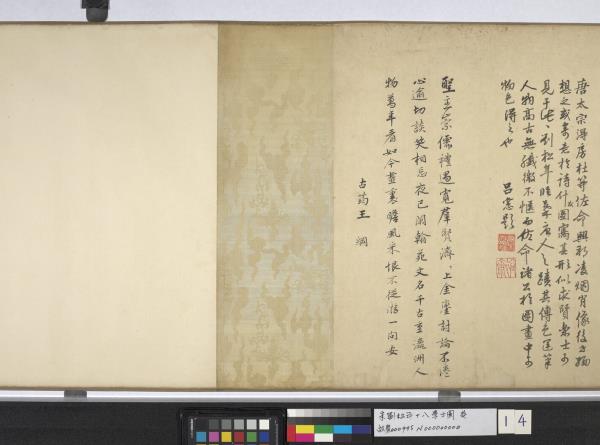 唐太宗得房杜等佐命興邦凌烟肖像後之緬
想之或委悉於詩什圖寫其形似求賢崇士可
見于此劉松年時慕唐人之蹟其傳色運筆
人物高古無纖微不愜而佐命諸公於圖畫中可
物色得之也
呂憲題
聖主崇儒禮遇寬羣賢濟〻上金鑾討論不倦
心逾切談笑相忘夜已闌翰苑文名千古重瀛洲人
物萬年看如今畫裏瞻風采恨不從游一問安
古筠王綱
宋劉松年十八學士圖 卷
故畫000995 N000000000
14